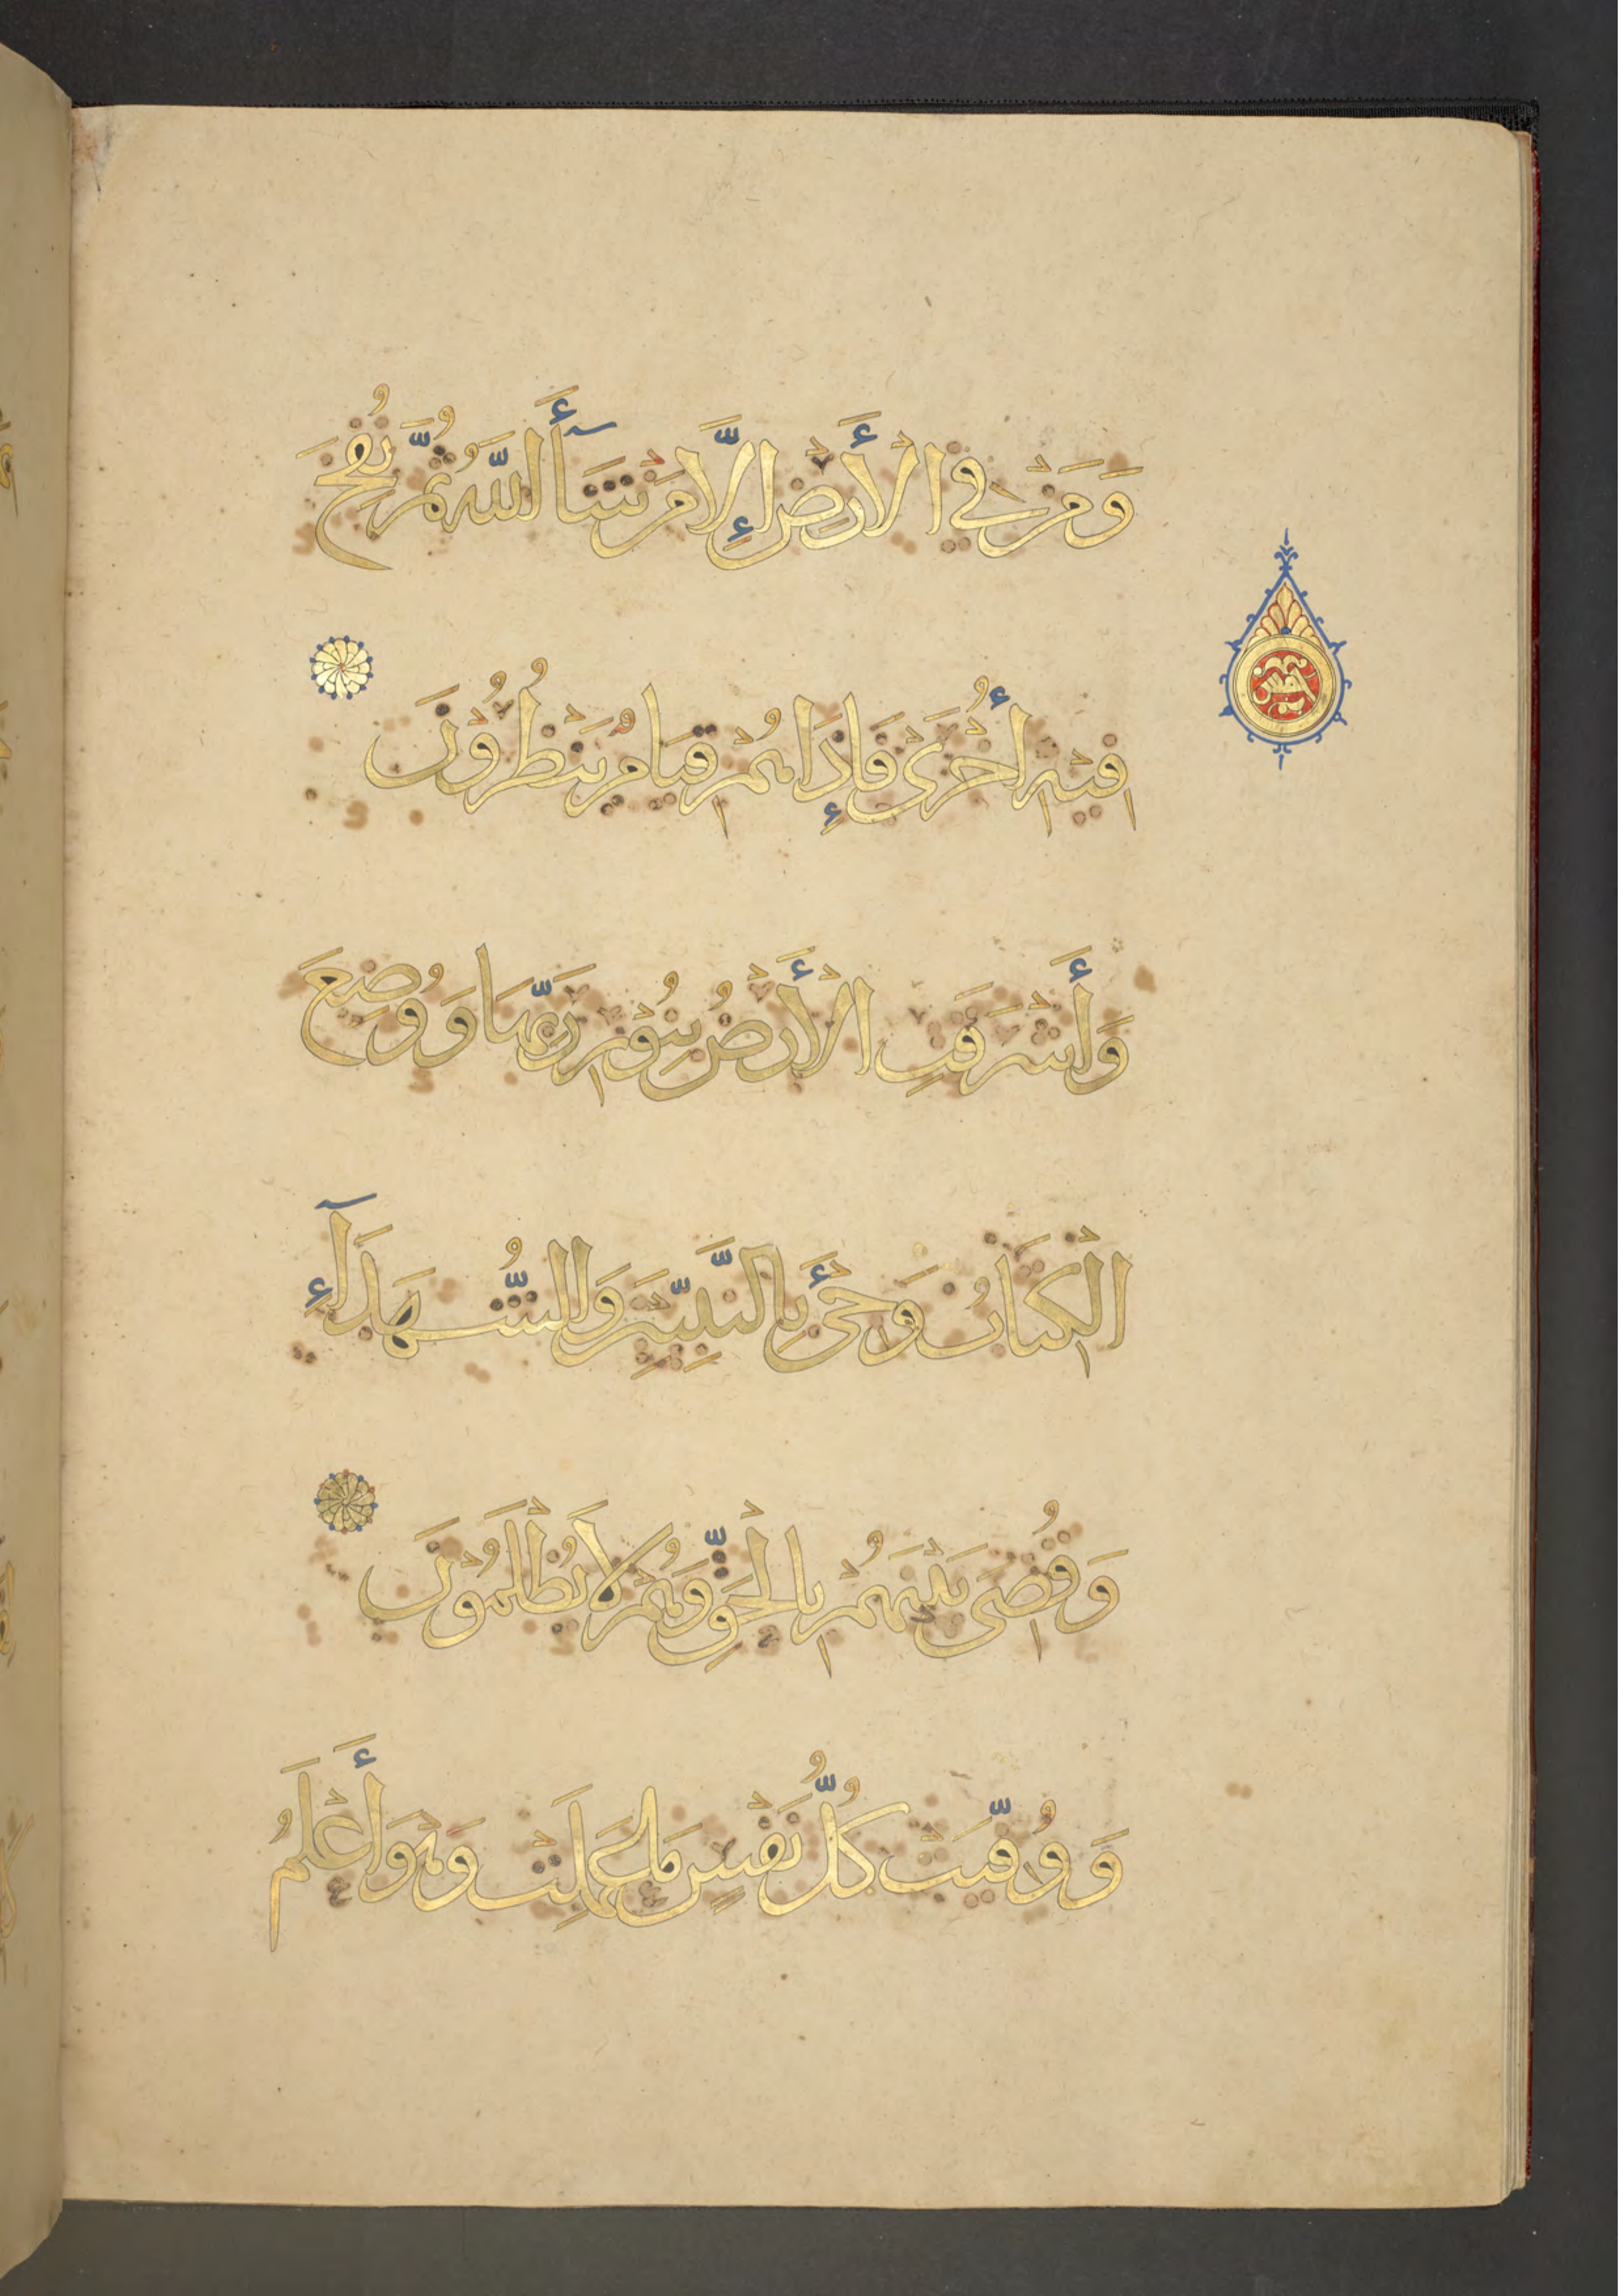 وَمَنْ فِي الْأَرْضِ إِلَّا مَنْ شَآءَ اللَّهُ ثُمَّ نُفِخَ
فِيْهِ أُخْرَى فَإِذَا هُمْ قِيَامٌ يَنْظُرُوْنَ
وَأَشْرَقَتِ الْأَرْضُ بِنُوْرِ رَبِّهَا وَوُضِعَ
الْكِتَابُ وَجِيْءَ بِالنَّبِيِّيْنَ وَالشُّهَدَآءِ
وَقُضِيَ بَيْنَهُمْ بِالْحَقِّ وَهُمْ لَا يُظْلَمُوْنَ
وَوُفِّيَتْ كُلُّ نَفْسٍ مَا عَمِلَتْ وَهْوَ أَعْلَمُ